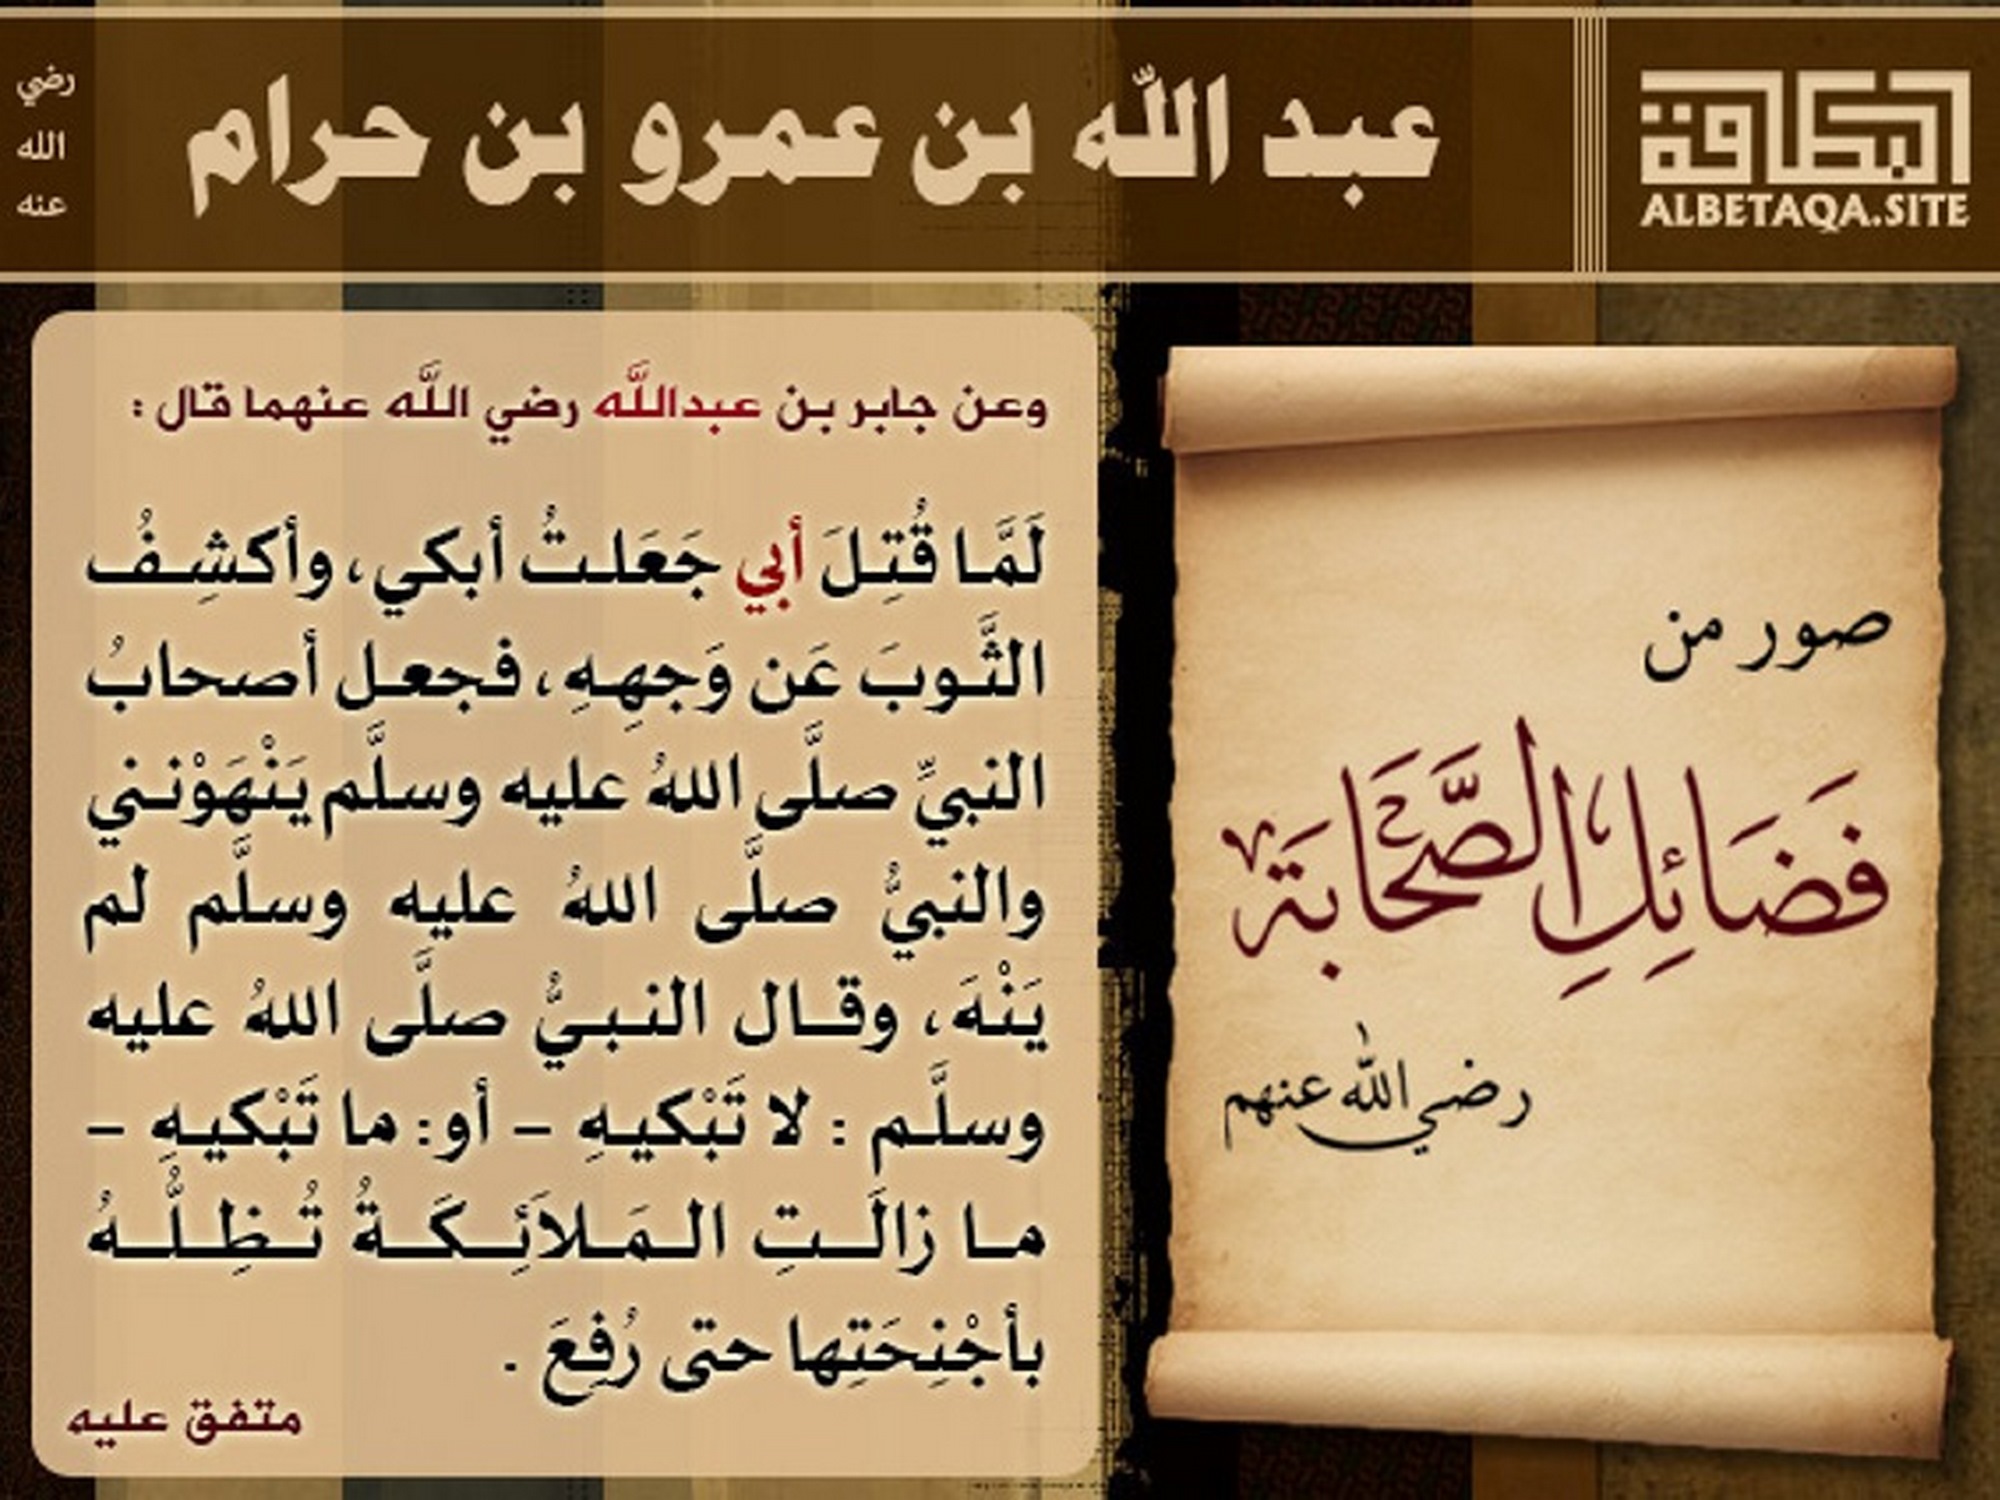 البطاقة
ALBETAQA.SITE
عبد الله بن عمرو بن حرام
رضي
الله
عنه
صور من
فَضَائِلِ الصَّحَابَة
رضي الله عنهم
وعن جابر بن عبدالله رضي الله عنهما قال :
لَمَّا قُتِلَ أبي جَعَلتُ أبكي، وأكشِفُ
الثَّوبَ عَن وَجهِهِ، فجعل أصحابُ
النبيِّ صلَّى اللهُ عليه وسلَّم يَنْهَوْنني
والنبيُّ صلَّى اللهُ عليه وسلَّم لم
يَنْهَ، وقال النبيُّ صلَّى اللهُ عليه
وسلَّم : لا تَبْكيهِ – أو: ما تَبْكيهِ –
ما زالَتِ المَلائِكَةُ تُظِلُّهُ
بأجْنِحَتِها حتى رُفِعَ .
متفق عليه